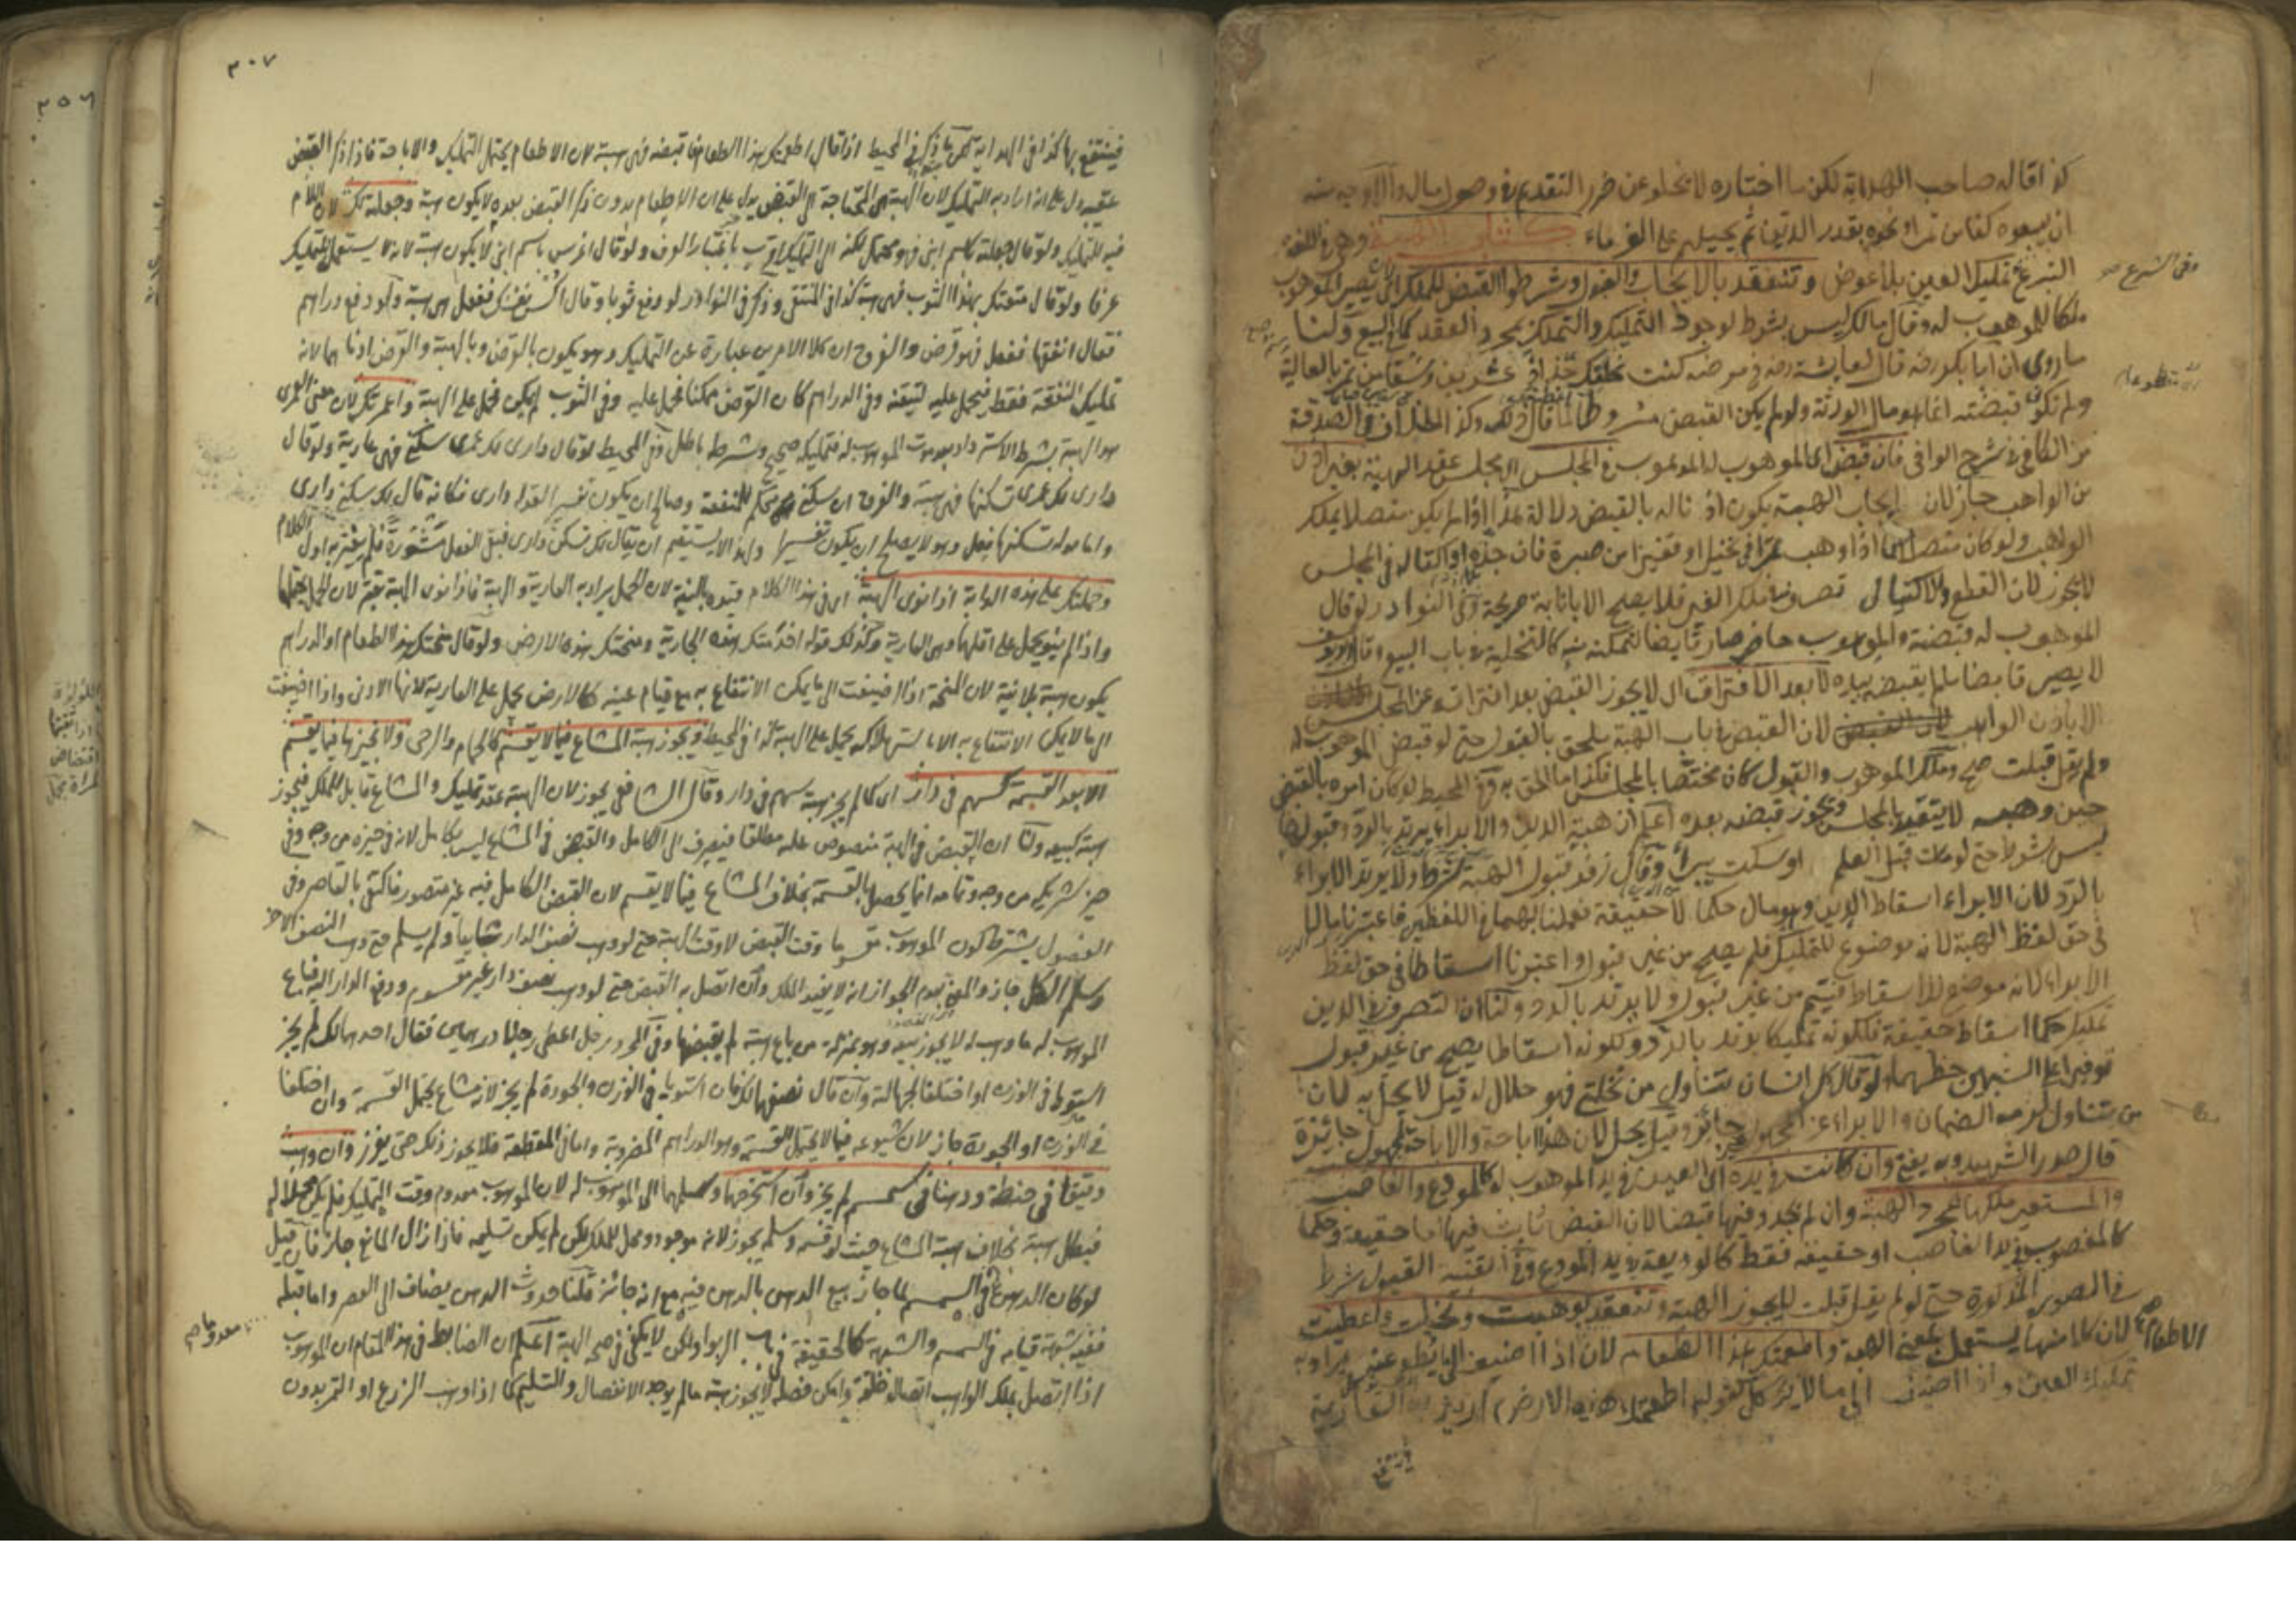 كذا قاله صاحب الهداية لكن ما اختاره لا يخلو عن ضرر النقد وصول مال والاوجه منه
ان يبيعوه كفاس تمر او نحوه بقدر الدين ثم يحيلهم على الغرماء كتاب الهبة وهي في اللغة
التبرع تمليك العين بلا عوض وتنعقد بالايجاب والقبول وشرطوا القبض للملك اي يصير الموهوب
وفي الشرع
ملكا للموهوب له وقال مالك ليس بشرط لوجود التمليك والتملك بمجرد العقد كما في البيع ولنا
ما روي ان ابا بكر رضه قال لعايشة رضه في مرضه كنت نحلتك جذاذ عشرين وسقا من تمر بالعالية
ولم تكوني قبضته انما هو مال الورثة ولو لم يكن القبض مشروطا لما قال ذلك وكذا الخلاف في الصدقة
من الكافي في شرح الوافي فان قبض اي الموهوب له الموهوب في المجلس اي مجلس عقد الهبة بغير اذن
من الواهب جاز لان ايجاب الهبة يكون اذنا له بالقبض دلالة هذا اذا لم يكن متصلا بملك
الواهب ولو كان متصلا كما اذا وهب تمرا في نخيل او قفيزا من صبرة فان جذه او اكتاله في المجلس
لا يجوز لان القطع والاكتيال تصرف في ملك الغير فلا يصح الا بانابة صريحة وفي النوادر لو قال
الموهوب له قبضته والموهوب حاضر صار قابضا لتمكنه منه كالتخلية في باب البيع وقال ابو يوسف
لا يصير قابضا ما لم يقبضه بيده لا بعد الافتراق اي لا يجوز القبض بعد افتراقه عن المجلس
الا باذن الواهب لان القبض في باب الهبة ملحق بالقبول حتى لو قبض الموهوب له
ولم يقل قبلت صح وملك الموهوب والقبول كان مختصا بالمجلس فكذا ما الحق به وفي المحيط لو كان امره بالقبض
حين وهبه لا يتقيد بالمجلس ويجوز قبضه بعده اعلم ان هبة الدين والابراء يرتد بالرد وقبولها
ليس بشرط حتى لو مات قبل العلم او سكت يبرأ وقال زفر قبول الهبة شرط ولا يرتد الابراء
بالرد لان الابراء اسقاط الدين وهو مال حكما لا حقيقة فعملنا بهما في اللفظين فاعتبرنا مالية الدين
في حق لفظ الهبة لانه موضوع للتمليك فلم يصح من غير قبول واعتبرنا اسقاطا في حق لفظ
الابراء لانه موضوع للاسقاط فيتم من غير قبول ولا يرتد بالرد ولنا ان التصرف في الدين
تمليك حكما اسقاط حقيقة فلكونه تمليكا يرتد بالرد ولكونه اسقاطا يصح من غير قبول
توفيرا على الشبهين حظهما ولو قال كل انسان يتناول من نخلتي فهو حلال له قيل لا يحل به لان
من يتناول لزمه الضمان والابراء عن المجهول غير جائز وقيل يحل لان هذا اباحة والاباحة للمجهول جائزة
قال صدر الشهيد وبه يفتى وان كانت في يده اي العين في يد الموهوب له كالمودع والغاصب
والمستعير ملكها بمجرد الهبة وان لم يجدد فيها قبضا لان القبض ثابت فيها اما حقيقة وحكما
كالمغصوب في يد الغاصب او حقيقة فقط كالوديعة في يد المودع وفي القنية القبول شرط
في الصور المذكورة حتى لو لم يقل قبلت لا يجوز الهبة وتنعقد بوهبت ونحلت واعطيت
لان كلا منها يستعمل بمعنى الهبة واطعمتك هذا الطعام لان الاطعام اذا اضيف الى ما يطعم عينه يراد به
تمليك العين واذا اضيف الى ما لا يؤكل كقوله اطعمتك هذه الارض اريد به العارية
فينتفع
٣٠٧
فينتفع بها كذا في الهداية ثم ما ذكر في المحيط اذا قال اطعمتك هذا الطعام فاقبضه فهي هبة لان الاطعام يحتمل التمليك والاباحة فاذا ذكر القبض
عقيبه دل على انه اراد به التمليك لان الهبة هي المحتاجة الى القبض يدل على ان الاطعام بدون ذكر القبض بعده لا يكون هبة وجعلته لك لان اللام
فيه للتمليك ولو قال جعلته باسم ابني فهو محتمل لكنه الى التمليك اقرب باعتبار العرف ولو قال اغرس باسم ابني لا يكون هبة لانه لا يستعمل للتمليك
عرفا ولو قال متعتك بهذا الثوب فهي هبة كذا في المنتقى وذكر في النوادر لو دفع ثوبا وقال اكس نفسك ففعل هي هبة ولو دفع دراهم
فقال انفقها ففعل فهو قرض والفرق ان كلا الامرين عبارة عن التمليك وهو يكون بالقرض وبالهبة والقرض ادناهما لانه
تمليك المنفعة فقط فيحمل عليه لتيقنه وفي الدراهم كان القرض ممكنا فحمل عليه وفي الثوب لم يمكن فحمل على الهبة واعمرتك لان معنى العمرى
هو الهبة بشرط الاسترداد بعد موت الموهوب له فتمليكه صحيح وشرطه باطل وفي المحيط لو قال داري لك عمرى سكنى فهي عارية ولو قال
داري لك عمرى تسكنها فهي هبة والفرق ان سكنى محكم للمنفعة وصالح ان يكون تفسيرا لقوله داري فكانه قال لك سكنى داري
واما قوله تسكنها ففعل وهو لا يصلح ان يكون تفسيرا ولهذا لا يستقيم ان يقال لك تسكن داري فبقي الفعل مشورة فلم يتغير به اول الكلام
وحملتك على هذه الدابة اذا نوى الهبة اي في هذا الكلام قيده بالنية لان الحمل يراد به العارية والهبة فاذا نوى الهبة تعين لان الحمل يحتملها
واذا لم ينو يحمل على اقلها وهي العارية وكذلك قوله اخدمتك هذه الجارية ومنحتك هذه الارض ولو قال منحتك هذا الطعام او الدراهم
يكون هبة بلا نية لان المنحة اذا اضيفت الى ما يمكن الانتفاع به مع قيام عينه كالارض يحمل على العارية لانها الادنى واذا اضيفت
الى ما لا يمكن الانتفاع به الا باستهلاكه يحمل على الهبة كذا في المحيط ويجوز هبة المشاع فيما لا يقسم كالحمام والرحى ولا نجيزها فيما يقسم
الا بعد القسمة كسهم في دار اي كما لم يجز هبة سهم في دار وقال الشافعي يجوز لان الهبة عقد تمليك والمشاع قابل للملك فيجوز
هبته كبيعه ولنا ان القبض في الهبة منصوص عليه مطلقا فينصرف الى الكامل والقبض في المشاع ليس بكامل لانه في حيزه من وجه وفي
حيز شريكه من وجه وتمامه انما يحصل بالقسمة بخلاف المشاع فيما لا يقسم لان القبض الكامل فيه غير متصور فاكتفي بالقاصر وفي
الفصول يشترط كون الموهوب مقسوما وقت القبض لا وقت الهبة حتى لو وهب نصف الدار شايعا ولم يسلم حتى وهب النصف الاخر
وسلم الكل جاز والمعني بعدم الجواز انه لا يفيد الملك وان اتصل به القبض حتى لو وهب نصف دار غير مقسوم ودفع الدار اليه فباع
الموهوب له ما وهب له لا يجوز بيعه وهو بمنزلة من باع هبة لم يقبضها وفي المجرد رجل اعطى رجلا درهمين فقال احدهما لك لم يجز
استويا في الوزن او اختلفا لجهالته وان قال نصفهما لك فان استويا في الوزن والجودة لم يجز لانه مشاع يحتمل القسمة وان اختلفا
في الوزن او الجودة جاز لان شيوعه فيما لا يحتمل القسمة وهو الدراهم المضروبة واما في المقطعة فلا يجوز ذلك حتى يفرز وان وهب
دقيقا في حنطة ودهنا في سمسم لم يجز وان استخرجها وسلمها الى الموهوب له لان الموهوب معدوم وقت التمليك فلم يكن محلا له
فبطل هبته بخلاف هبة المشاع حيث لو قسمه وسلمه يجوز لانه موجود ومحل للملك لكن لم يمكن تسليمه فاذا زال المانع جاز فان قيل
لو كان الدهن في السمسم لما جاز بيع الدهن بالدهن فيه مع انه جائز قلنا حدوث الدهن يضاف الى العصر واما قبله
معدوما صح
ففيه شبهة قيامه في السمسم والشبهة كالحقيقة في باب الربوا ولكن لا يكفي في صحة الهبة اعلم ان الضابط في هذا المقام ان الموهوب
اذا اتصل بملك الواهب اتصال خلقة وامكن فصله لا يجوز هبته ما لم يوجد الانفصال والتسليم كما اذا وهب الزرع او الثمر بدون